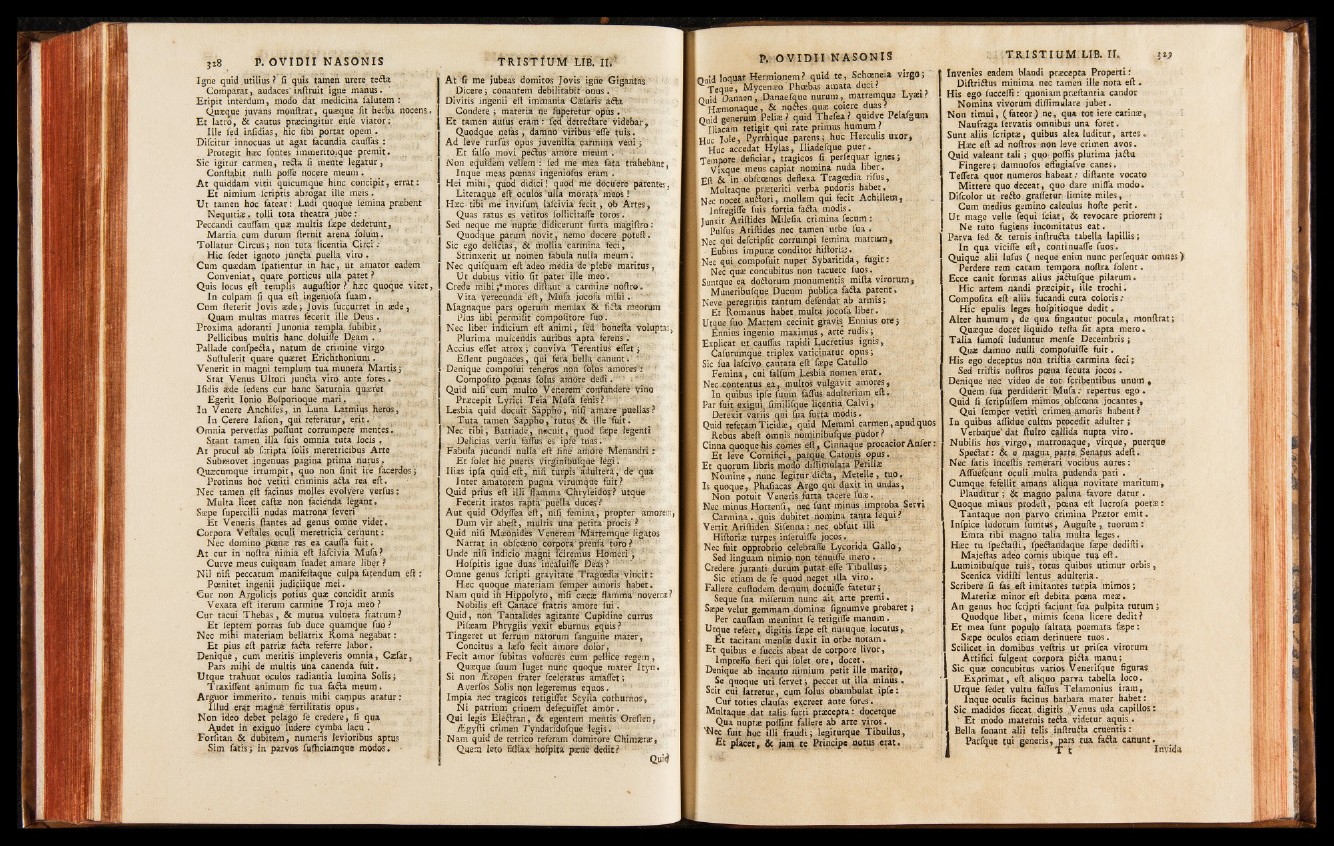 328 P. OVIDII NASONIS
Igne quid utilius? ſi quis tamen urere tecta
Comparat, audaces inſtruit igne manus.
Eripit interdum, modo dat medicina ſalutem:
Quæque juvans monſtrat, quæque ſit herba nocens.
Et latro, & cautus præcingitur enſe viator:
Ille ſed inſidias, hic ſibi portat opem.
Diſcitur innocuas ut agat facundia cauſſas:
Protegit hæc fontes immeritoſque premit.
Sic igitur carmen, recta ſi mente legatur,
Conſtabit nulli poſſe nocere meum.
At quiddam vitii quicumque hinc concipit, errat:
Et nimium ſcriptis abrogat ille meis.
Ut tamen hoc fatear: Ludi quoque ſemina præbent
Nequitiæ, tolli tota theatra jube:
Peccandi cauſſam quæ multis ſæpe dederunt,
Martia cum durum ſternit arena ſolum.
Tollatur Circus; non tuta licentia Circi:
Hic ſedet ignoto juncta puella viro.
Cum quædam ſpatientur in hac, ut amator eadem
Conveniat, quare porticus ulla patet?
Quis locus eſt templis auguſtior? hæc quoque vitet,
In culpam ſi qua eſt ingenioſa ſuam.
Cum ſteterit Jovis æde; Jovis ſuccurret in æde,
Quam multas matres fecerit ille Deus.
Proxima adoranti Junonia templa ſubibit,
Pellicibus multis hanc doluiſſe Deam.
Pallade conſpecta, natum de crimine virgo
Suſtulerit quare quæret Erichthonium.
Venerit in magni templum tua munera Martis;
Stat Venus Ultori juncta viro ante fores.
Iſidis æde ſedens cur hanc Saturnia quæret
Egerit Ionio Boſporioque mari.
In Venere Anchiſes, in Luna Latmius heros,
In Cerere Iaſion, qui referatur, erit.
Omnia perverſas poſſunt corrumpere mentes.
Stant tamen illa ſuis omnia tuta locis.
At procul ab ſcripta ſolis meretricibus Arte
Submovet ingenuas pagina prima nurus.
Quæcumque irrumpit, quo non ſinit ire ſacerdos;
Protinus hoc vetiti criminis acta rea eſt.
Nec tamen eſt facinus molles evolvere verſus:
Multa licet caſtæ non facienda legant.
Sæpe ſupercilli nudas matrona ſeveri
Et Veneris ſtantes ad genus omne videt.
Corpora Veſtales oculi meretricia cernunt:
Nec domino pœnæ res ea cauſſa fuit.
At cur in noſtra nimia eſt laſcivia Muſa?
Curve meus cuiquam ſuadet amare liber?
Nil niſi peccatum manifeſtaque culpa fatendum eſt:
Pœnitet ingenii judiciique mei.
Cur non Argolicis potius quæ concidit armis
Vexata eſt iterum carmine Troja meo?
Cur tacui Thebas, & mutua vulnera fratrum?
Et ſeptem portas ſub duce quamque ſuo?
Nec mihi materiam bellatrix Roma negabat:
Et pius eſt patriæ facta referre labor.
Denique, cum meritis impleveris omnia, Cæſar,
Pars mihi de multis una canenda fuit.
Utque trahunt oculos radiantia lumina Solis;
Traxiſſent animum ſic tua facta meum.
Arguor immerito. tenuis mihi campus aratur:
Illud erat magnæ fertilitatis opus.
Non ideo debet pelago ſe credere, ſi qua
Audet in exiguo ludere cymba lacu.
Forſitan & dubitem, numeris levioribus aptus
Sim ſatis; in parvos ſufficiamque modos.
TRISTIUM LIB. II.
At ſi me jubeas domitos Jovis igne Gigantas
Dicere; conantem debilitabit onus.
Divitis ingenii eſt immania Cæſaris acta
Condere; materia ne ſuperetur opus.
Et tamen auſus eram: ſed detrectare videbar,
Quodque nefas, damno viribus eſſe tuis.
Ad leve rurſus opus juvenilia carmina veni;
Et falſo movi pectus amore meum.
Non equidem vellem: ſed me mea fata trahebant,
Inque meas pœnas ingenioſus eram.
Hei mihi, quod didici! quod me docuere parentes,
Literaque eſt oculos ulla morata meos!
Hæc tibi me inviſum laſcivia fecit, ob Artes,
Quas ratus es vetitos ſollicitaſſe toros.
Sed neque me nuptæ didicerunt furta magiſtro:
Quodque parum novit, nemo docere poteſt.
Sic ego delicias, & mollia carmina feci,
Strinxerit ut nomen fabula nulla meum.
Nec quiſquam eſt adeo media de plebe maritus,
Ut dubius vitio ſit pater ille meo.
Crede mihi, mores diſtant a carmine noſtro.
Vita verecunda eſt, Muſa jocoſa mihi.
Magnaque pars operum mendax & ficta meorum
Plus ſibi permiſit compoſitore ſuo.
Nec liber indicium eſt animi, ſed honeſta voluptas,
Plurima mulcendis auribus apta ferens.
Accius eſſet atrox; conviva Terentius eſſet;
Eſſent pugnaces, qui fera bella canunt.
Denique compoſui teneros non ſolus amores:
Compoſito pœnas ſolus amore dedi.
Quid niſi cum multo Venerem confundere vino
Præcepit Lyrici Teia Muſa ſenis?
Lesbia quid docuit Sappho, niſi amare puellas?
Tuta tamen Sappho, tutus & ille fuit.
Nec tibi, Battiade, nocuit, quod ſæpe legenti
Delicias verſu faſſus es ipſe tuas.
Fabula jucundi nulla eſt ſine amore Menandri:
Et ſolet hic pueris virginibuſque legi.
Ilias ipſa quid eſt, niſi turpis adultera, de qua
Inter amatorem pugna virumque fuit?
Quid prius eſt illi flamma Chryſeidos? utque
Fecerit iratos rapta puella duces?
Aut quid Odyſſea eſt, niſi femina, propter amorem,
Dum vir abeſt, multis una petita procis?
Quid niſi Mæonides Venerem Martemque ligatos
Narrat in obſcœno corpora prenſa toro?
Unde niſi indicio magni ſciremus Homeri,
Hoſpitis igne duas incaluiſſe Deas?
Omne genus ſcripti gravitate Tragœdia vincit:
Hæc quoque materiam ſemper amoris habet.
Nam quid in Hippolyto, niſi cæcæ flamma novercæ?
Nobilis eſt Canace fratris amore ſui.
Quid, non Tantalides agitante Cupidine currus
Piſæam Phrygiis vexit eburnus equis?
Tingeret ut ferrum natorum ſanguine mater,
Concitus a læſo fecit amore dolor.
Fecit amor ſubitas volucres cum pellice regem,
Quæque ſuum luget nunc quoque mater Ityn.
Si non Æropen frater ſceleratus amaſſet;
Averſos Solis non legeremus equos.
Impia nec tragicos tetigiſſet Scylla cothurnos,
Ni patrium crinem deſecuiſſet amor.
Qui legis Electran, & egentem mentis Oreſten,
Ægyſti crimen Tyndaridoſque legis.
Nam quid de tetrico referam domitore Chimæræ,
Quem leto fallax hoſpita pæne dedit?
Quid
P. OVIDII NASONIS
Quid loquar Hermionem? quid te, Schœneia virgo;
Teque, Mycenæo Phœbas amata duci?
Quid Danaen, Danaeſque nurum, matremque Lyæi?
Hæmonaque, & noctes quæ coiere duas?
Quid generum Peliæ? quid Theſea? quidve Pelaſgum
Iliacam tetigit qui rate primus humum?
Huc Iole, Pyrrhique parens; huc Herculis uxor,
Huc accedat Hylas, Iliadeſque puer.
Tempore deficiar, tragicos ſi perſequar ignes;
Vixque meus capiat nomina nuda liber.
Eſt & in obſcœnos deflexa Tragœdia riſus,
Multaque præteriti verba pudoris habet.
Nec nocet auctori, mollem qui fecit Achillem,
Infregiſſe ſuis fortia facta modis.
Junxit Ariſtides Mileſia crimina ſecum:
Pulſus Ariſtides nec tamen urbe ſua.
Nec qui deſcripſit corrumpi ſemina matrum,
Eubius impuræ conditor hiſtoriæ.
Nec qui compoſuit nuper Sybaritida, fugit:
Nec quæ concubitus non tacuere ſuos.
Suntque ea doctorum monumentis miſta virorum,
Muneribuſque Ducum publica facta patent.
Neve peregrinis tantum defendar ab armis;
Et Romanus habet multa jocoſa liber.
Utque ſuo Martem cecinit gravis Ennius ore;
Ennius ingenio maximus, arte rudis;
Explicat ut cauſſas rapidi Lucretius ignis,
Caſurumque triplex vaticinatur opus;
Sic ſua laſcivo cantata eſt ſæpe Catullo
Femina, cui falſum Lesbia nomen erat.
Nec contentus ea, multos vulgavit amores,
In quibus ipſe ſuum faſſus adulterium eſt.
Par fuit exigui, ſimiliſque licentia Calvi,
Detexit variis qui ſua furta modis.
Quid referam Ticidæ, quid Memmî carmen, apud quos
Rebus abeſt omnis nominibuſque pudor?
Cinna quoque his comes eſt, Cinnaque procacior Anſer:
Et leve Cornifici, parque Catonis opus.
Et quorum libris modo diſſimulata Perillæ
Nomine, nunc legitur dicta, Metelle, tuo.
Is quoque, Phaſiacas Argo qui duxit in undas,
Non potuit Veneris furta tacere ſuæ.
Nec minus Hortensî, nec ſunt minus improba Servî
Carmina. quis dubitet nomina tanta ſequi?
Vertit Ariſtiden Siſenna: nec obfuit illi
Hiſtoriæ turpes inſeruiſſe jocos.
Nec fuit opprobrio celebraſſe Lycorida Gallo,
Sed linguam nimio non tenuiſſe mero.
Credere juranti durum putat eſſe Tibullus,
Sic etiam de ſe quod neget illa viro.
Fallere cuſtodem demum docuiſſe fatetur;
Seque ſua miſerum nunc ait arte premi.
Sæpe velut gemmam dominæ ſignumve probaret;
Per cauſſam meminit ſe tetigiſſe manum.
Utque refert, digitis ſæpe eſt nutuque locutus,
Et tacitam menſæ duxit in orbe notam.
Et quibus e ſuccis abeat de corpore livor,
Impreſſo fieri qui ſolet ore, docet.
Denique ab incauto nimium petit ille marito,
Se quoque uti ſervet; peccet ut illa minus.
Scit cui latretur, cum ſolus obambulat ipſe:
Cur toties clauſas excreet ante fores.
Multaque dat talis furti præcepta: docetque
Qua nuptæ poſſint fallere ab arte viros.
Nec fuit hoc illi fraudi; legiturque Tibullus,
Et placet, & jam te Principe notus erat.
TRISTIUM LIB. II. 329
Invenies eadem blandi præcepta Properti:
Diſtrictus minima nec tamen ille nota eſt.
His ego ſucceſſi: quoniam præſtantia candor
Nomina vivorum diſſimulare jubet.
Non timui, (fateor) ne, qua tot iere carinæ,
Naufraga ſervatis omnibus una foret.
Sunt aliis ſcriptæ, quibus alea luditur, artes.
Hæc eſt ad noſtros non leve crimen avos.
Quid valeant tali; quo poſſis plurima jactu
Fingere; damnoſos effugiaſve canes.
Teſſera quot numeros habeat: diſtante vocato
Mittere quo deceat, quo dare miſſa modo.
Diſcolor ut recto graſſetur limite miles,
Cum medius gemino calculus hoſte perit.
Ut mage velle ſequi ſciat, & revocare priorem;
Ne tuto fugiens incomitatus eat.
Parva ſed & ternis inſtructa tabella lapillis;
In qua viciſſe eſt, continuaſſe ſuos.
Quique alii luſus (neque enim nunc perſequar omnes)
Perdere rem caram tempora noſtra ſolent.
Ecce canit formas alius jactuſque pilarum.
Hic artem nandi præcipit, ille trochi.
Compoſita eſt aliis fucandi cura coloris:
Hic epulis leges hoſpitioque dedit.
Alter humum, de qua fingantur pocula, monſtrat;
Quæque docet liquido teſta ſit apta mero.
Talia fumoſi luduntur menſe Decembris;
Quæ damno nulli compoſuiſſe fuit.
His ego deceptus non triſtia carmina feci;
Sed triſtis noſtros pœna ſecuta jocos.
Denique nec video de tot ſcribentibus unum,
Quem ſua perdiderit Muſa: repertus ego.
Quid ſi ſcripſiſſem mimos obſcœna jocantes,
Qui ſemper vetiti crimen amoris habent?
In quibus aſſidue cultus procedit adulter;
Verbaque dat ſtulto callida nupta viro.
Nubilis hos virgo, matronaque, virque, puerque
Spectat: & e magna parte Senatus adeſt.
Nec ſatis inceſtis temerari vocibus aures:
Aſſueſcunt oculi multa pudenda pati.
Cumque fefellit amans aliqua novitate maritum,
Plauditur; & magno palma favore datur.
Quoque minus prodeſt, pœna eſt lucroſa poetæ:
Tantaque non parvo crimina Prætor emit.
Inſpice ludorum ſumtus, Auguſte, tuorum:
Emta tibi magno talia multa leges.
Hæc tu ſpectaſti, ſpectandaque ſæpe dediſti.
Majeſtas adeo comis ubique tua eſt.
Luminibuſque tuis, totus quibus utimur orbis,
Scenica vidiſti lentus adulteria.
Scribere ſi fas eſt imitantes turpia mimos:
Materiæ minor eſt debita pœna meæ.
An genus hoc ſcripti faciunt ſua pulpita tutum;
Quodque libet, mimis ſcena licere dedit?
Et mea ſunt populo ſaltata poemata ſæpe:
Sæpe oculos etiam detinuere tuos.
Scilicet in domibus veſtris ut priſca virorum
Artifici fulgent corpora picta manu;
Sic quæ concubitus varios Veneriſque figuras
Exprimat, eſt aliquo parva tabella loco.
Utque ſedet vultu faſſus Telamonius iram,
Inque oculis facinus barbara mater habet:
Sic madidos ſiccat digitis Venus uda capillos:
Et modo maternis tecta videtur aquis.
Bella ſonant alii telis inſtructa cruentis:
Parſque tui generis, pars tua facta canunt.
T t Invida